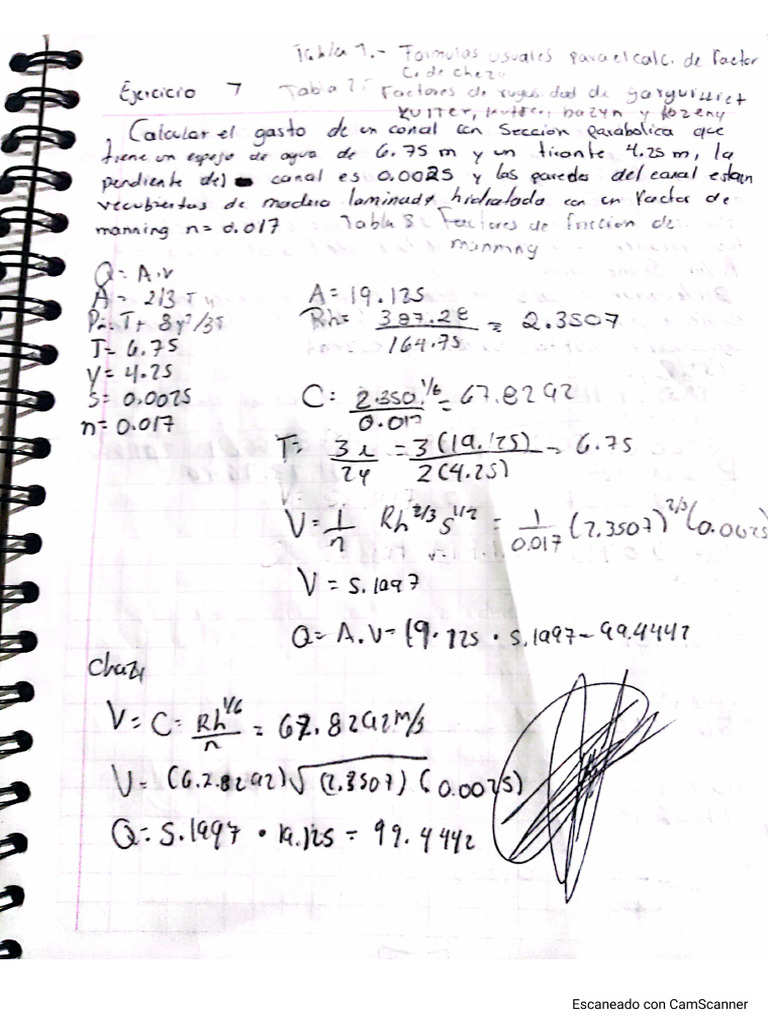 Tabla 1.- Formulas usuales para el calc. de Factor
C. de chezy
Ejercicio 7 Tabla 2: Factores de rugosidad de ganguillet
kutter, kutter, bazyn y kozeny
Calcular el gasto de un canal con sección parabolica que
tiene un espejo de agua de 6.75 m y un tirante 4.25 m, la
pendiente del canal es 0.0025 y las paredes del canal estan
recubiertas de madera laminada hidratada con un factor de
manning n= 0.017 Tabla 8. Factores de friccion de
manning
Q = A.v
A = 2/3 T y A = 19.125
P = T + 8y²/3T Rh = 387.28 / 164.75 = 2.3507
T = 6.75
y = 4.25
S = 0.0025 C = 2.350^1/6 / 0.017 = 67.8292
n = 0.017
T = 3A / 2y = 3(19.125) / 2(4.25) = 6.75
V = 1/n Rh^2/3 S^1/2 = 1/0.017 (2.3507)^2/3 (0.0025
V = 5.1997
Q = A.V = 19.125 · 5.1997 = 99.4442
Chezy
V = C = Rh^1/6 / n = 67.8292 m/s
V = (67.8292) √(2.3507) (0.0025)
Q = 5.1997 · 19.125 = 99.4442
Escaneado con CamScanner